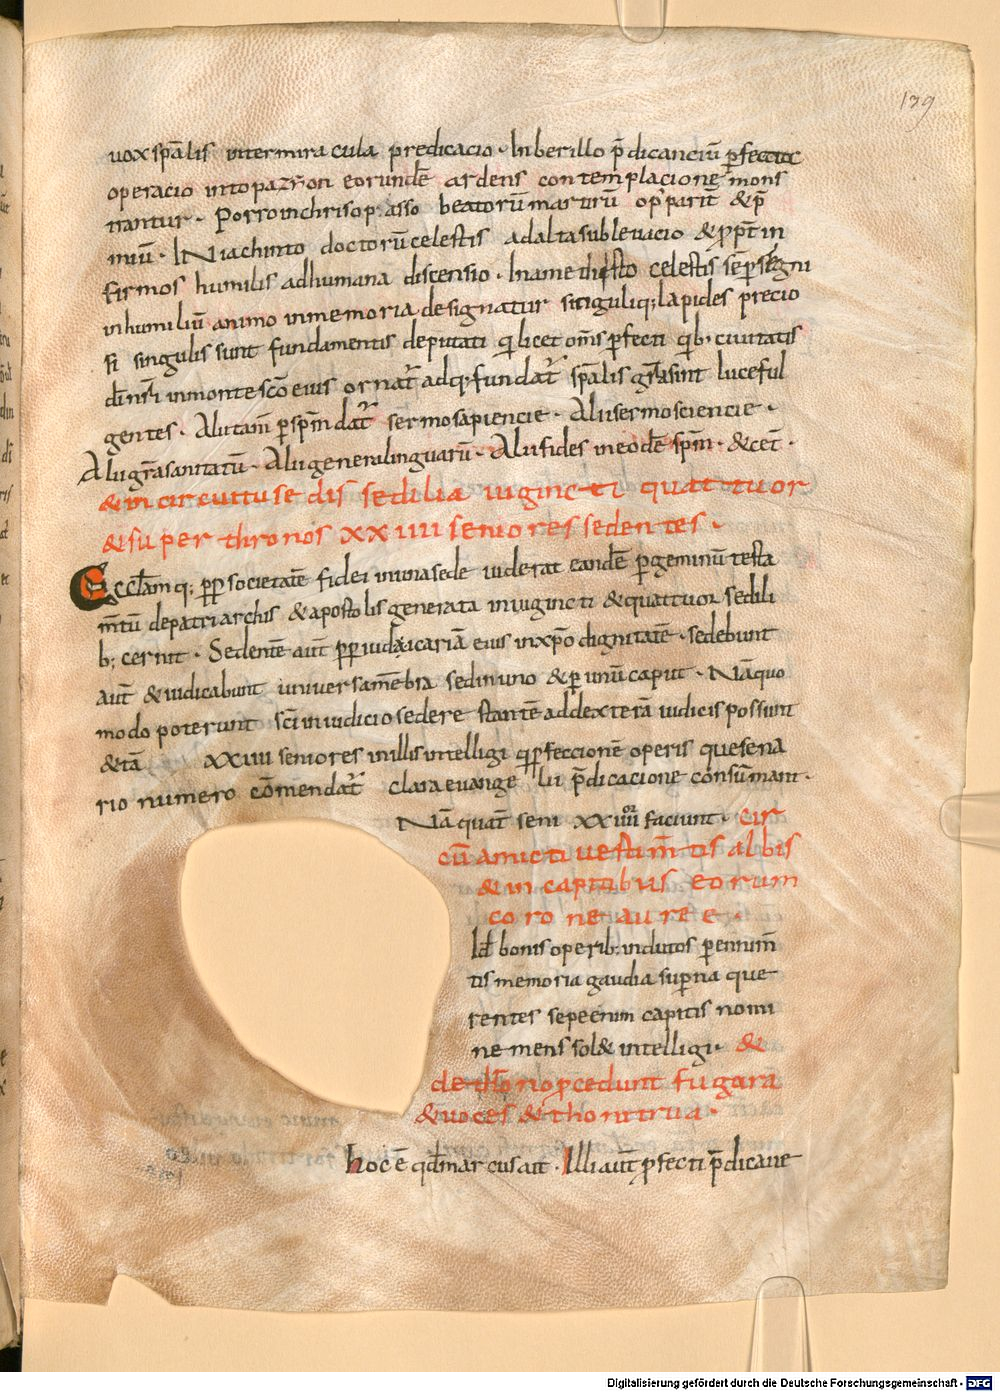 139
uox sp̄alis inter miracula predicacio · In berillo p̄dicanciū ꝑfecta
operacio in topazion eorundē ardens contemplacione mons
trantur · Porro in chrisopasso beatorū martirū op̄ parit̄ & p̄
miū · IN iachinto doctorū celestis ad alta subleuacio & ꝓpt̄ in
firmos humilis ad humana discensio · In amethisto celestis seꝑ segni
in humiliū animo in memoria designatur singuliq; lapides precio
si singulis sunt fundamentis deputati q licet om̄s ꝑfecti q̄b; ciuitatis
dī nr̄i in monte sc̄o eius ornat̄ adq; fundat̄ sp̄alis gr̄a sint luce ful
gentes · Alii tam̄ ꝑ sp̄m dat̄ sermo sapiencie · Alii sermo sciencie ·
Alii gr̄a sanitatū · Alii genera linguarū · Alii fides in eodē sp̄m · & cet̄ ·
& in circuitu sedis sedilia uigincti quattuor
& super thronos XXIIII seniores sedentes ·
Eccl̄am q; ꝓp societatē fidei in una sede uiderat eandē ꝑ geminū testa
m̄tū de patriarchis & apostolis generata in uigincti & quattuor sedili
b; cernit · Sedentē aut̄ ꝓp iudicariā eius in xp̄o dignitatē · sedebunt
aut̄ & iudicabunt uniuersa mēbra sed in uno & ꝑ unū caput · Nā quo
modo poterunt sc̄i in iudicio sedere stantē ad dexterā iudicis possunt
& iā XXIIII seniores in illis intelligi q ꝑfeccionē operis que sena
rio numero cōmendat̄ clara euangelii p̄dicacione consūmant ·
Nā quat̄ seni XXIIIIor faciunt · cir
cū amicti uestim̄tis albis
& in capitibus eorum
corone auree ·
Id bonis operib; indutos ꝑennim̄
tis memoria gaudia suꝑna que
rentes sepe enim capitis nomi
ne mens sol& intelligi · &
de throno ꝓcedunt fugora
& uoces & thonitrua ·
hoc ē qd̄ marcus ait · Illi aut̄ ꝓfecti p̄dicaue
Digitalisierung gefördert durch die Deutsche Forschungsgemeinschaft - DFG